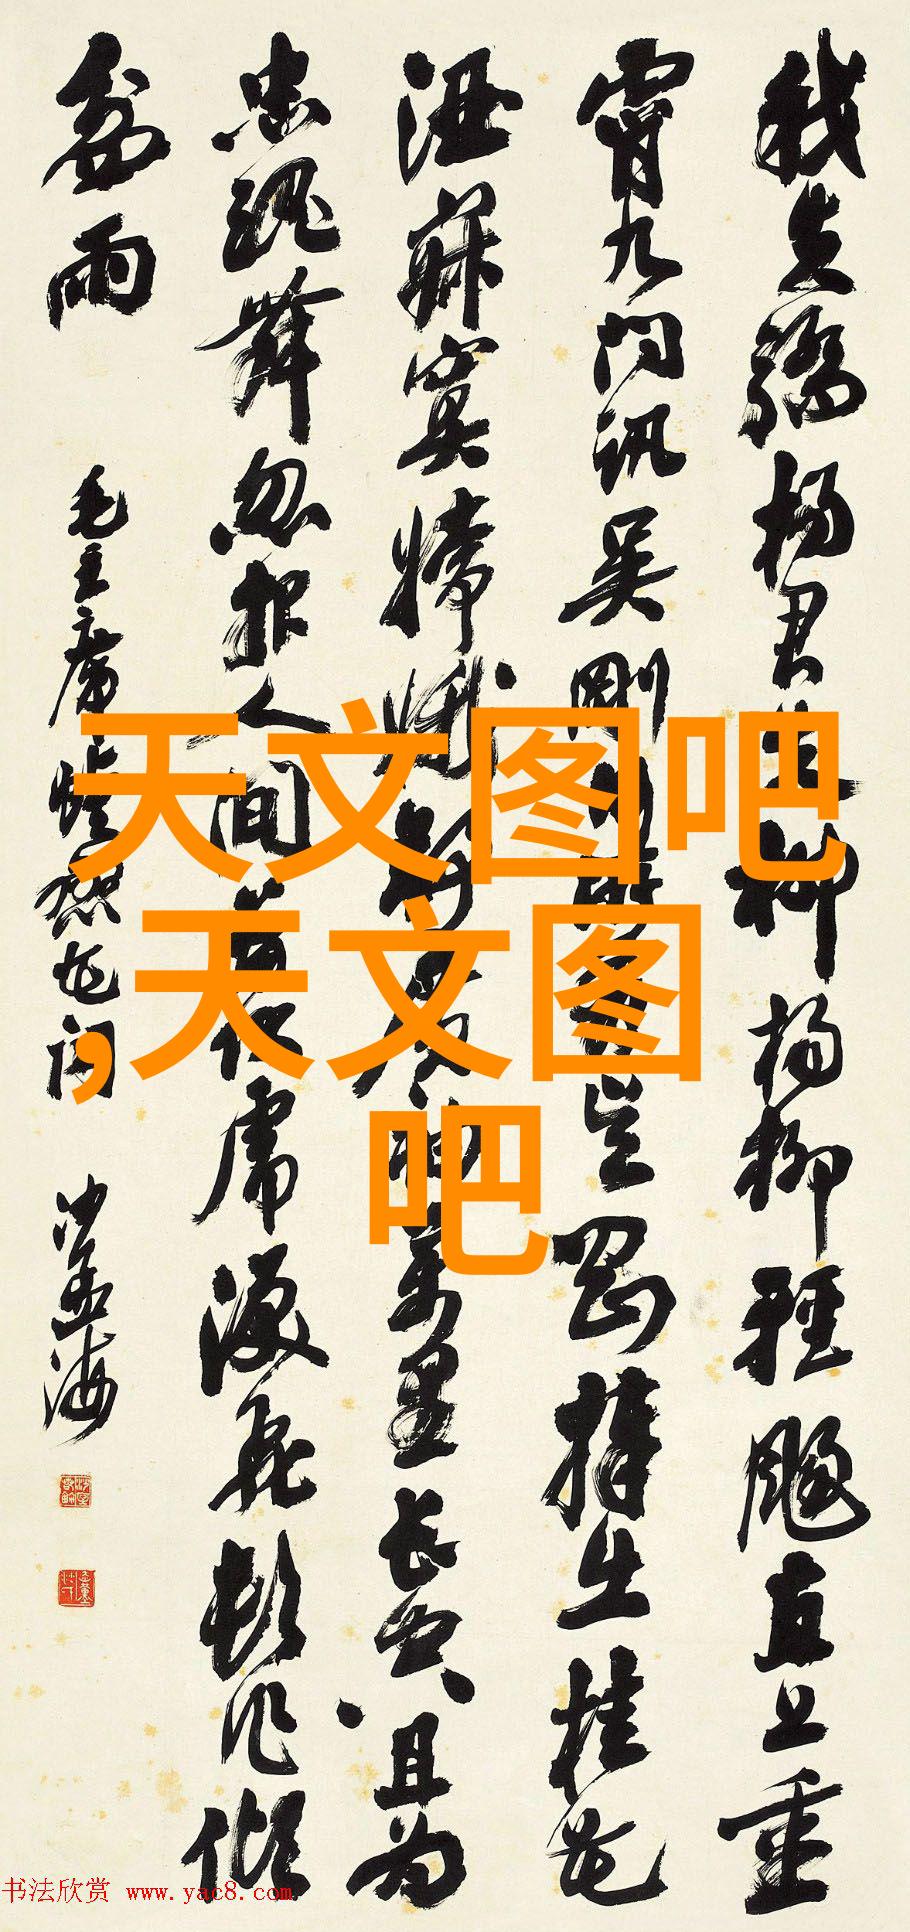 我失骄杨君失柳杨柳轻飏直上重
霄九问讯吴刚何所有吴刚捧出桂花
酒寂寞嫦娥舒广袖万里长空且为
忠魂舞忽报人间曾伏虎泪飞顿作倾
盆雨
毛主席蝶恋花词
沙孟海
天文图吧
,天文图
吧
书法欣赏 www.yac8.com